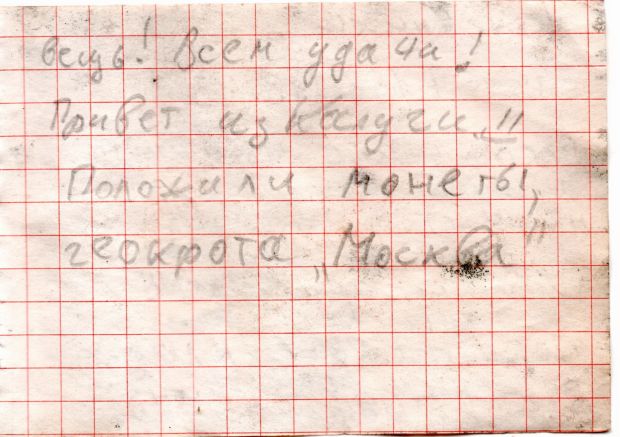 вещь! Всем удачи!
Привет из Калуги!!
Положили монеты,
геокрота „Москва"